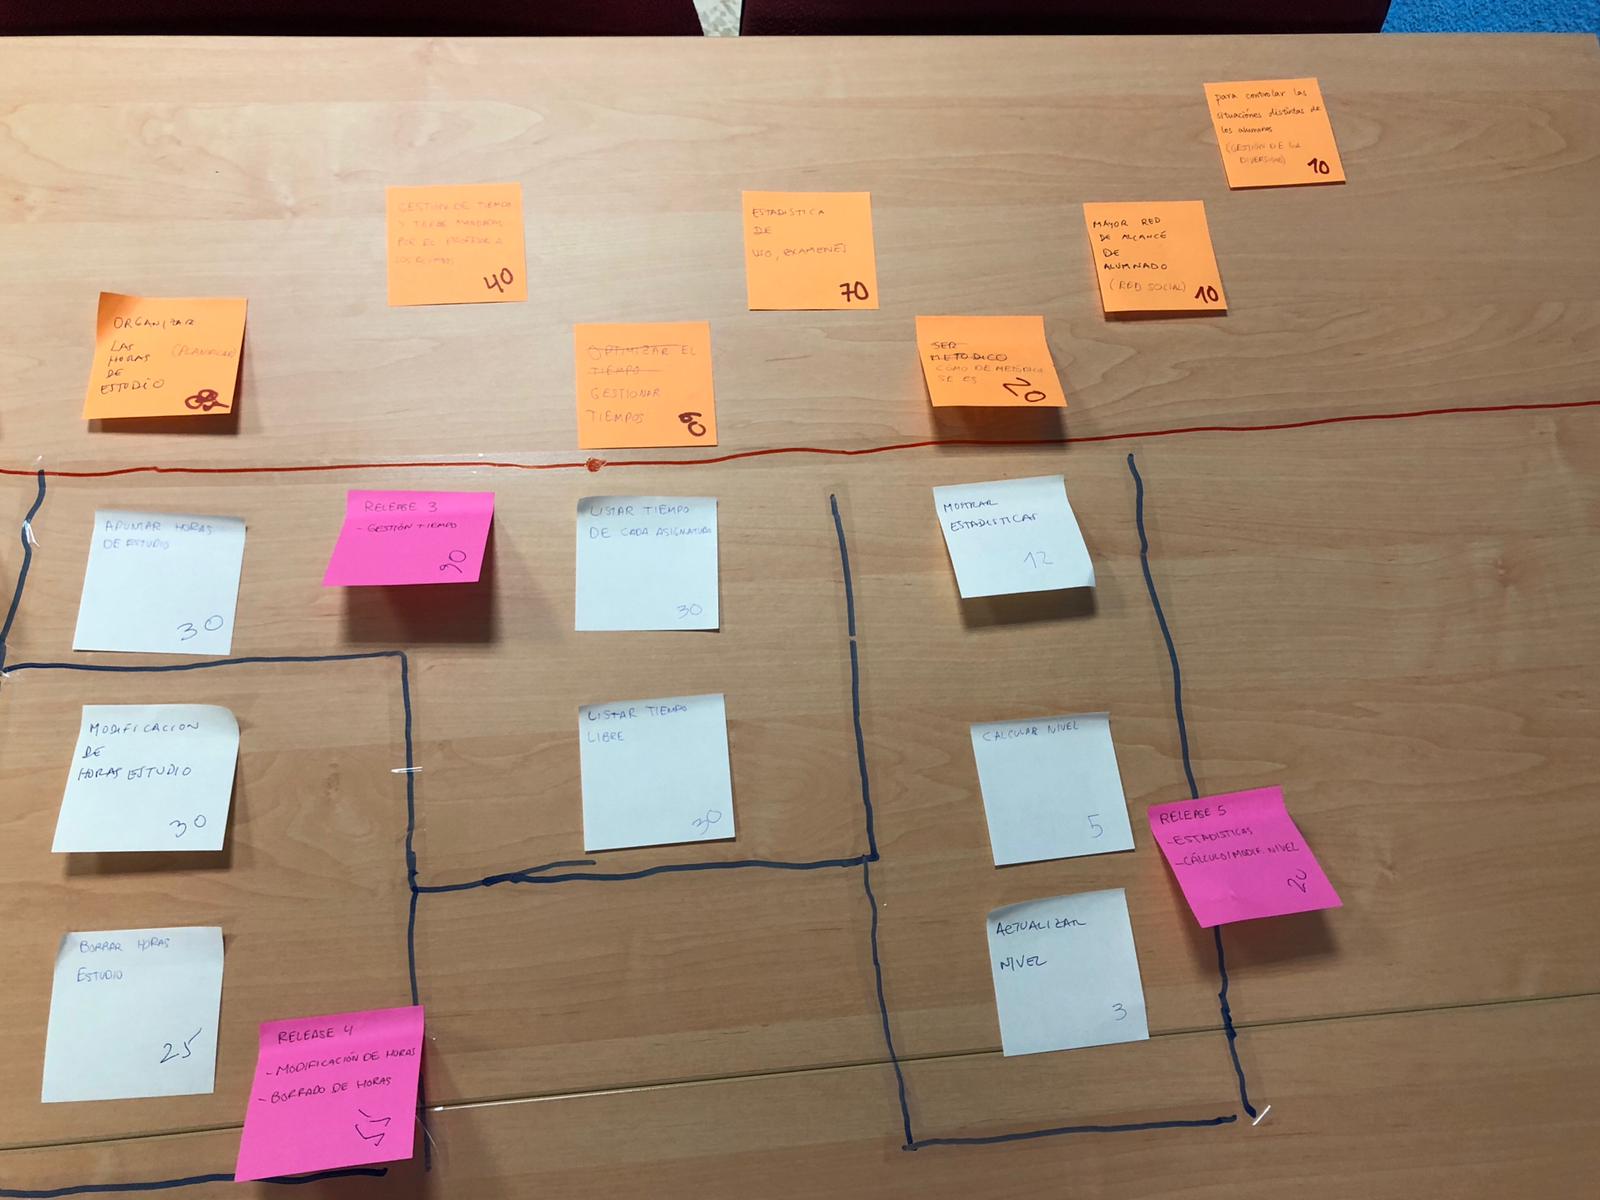 para controlar las
situaciónes distintas de
los alumnos
(GESTIÓN DE LA
DIVERSIDAD)
10
GESTIÓN DE TIEMPO
Y TAREAS MANDADAS
POR EL PROFESOR A
LOS ALUMNOS
40
ESTADISTICA
DE
USO, EXAMENES
70
MAYOR RED
DE ALCANCE
DE
ALUMNADO
(RED SOCIAL)
10
ORGANIZAR
LAS (PLANIFICAR)
HORAS
DE
ESTUDIO
OPTIMIZAR EL
TIEMPO
GESTIONAR
TIEMPOS
60
SER
METODICO
COMO DE METÓDICO
SE ES
20
APUNTAR HORAS
DE ESTUDIO
30
RELEASE 3
- GESTIÓN TIEMPO
90
LISTAR TIEMPO
DE CADA ASIGNATURA
30
MOSTRAR
ESTADISTICAS
12
MODIFICACION
DE
HORAS ESTUDIO
30
LISTAR TIEMPO
LIBRE
30
CALCULAR NIVEL
5
RELEASE 5
- ESTADISTICAS
- CÁLCULO/MODIF. NIVEL
20
BORRAR HORAS
ESTUDIO
25
ACTUALIZAR
NIVEL
3
RELEASE 4
- MODIFICACIÓN DE HORAS
- BORRADO DE HORAS
55